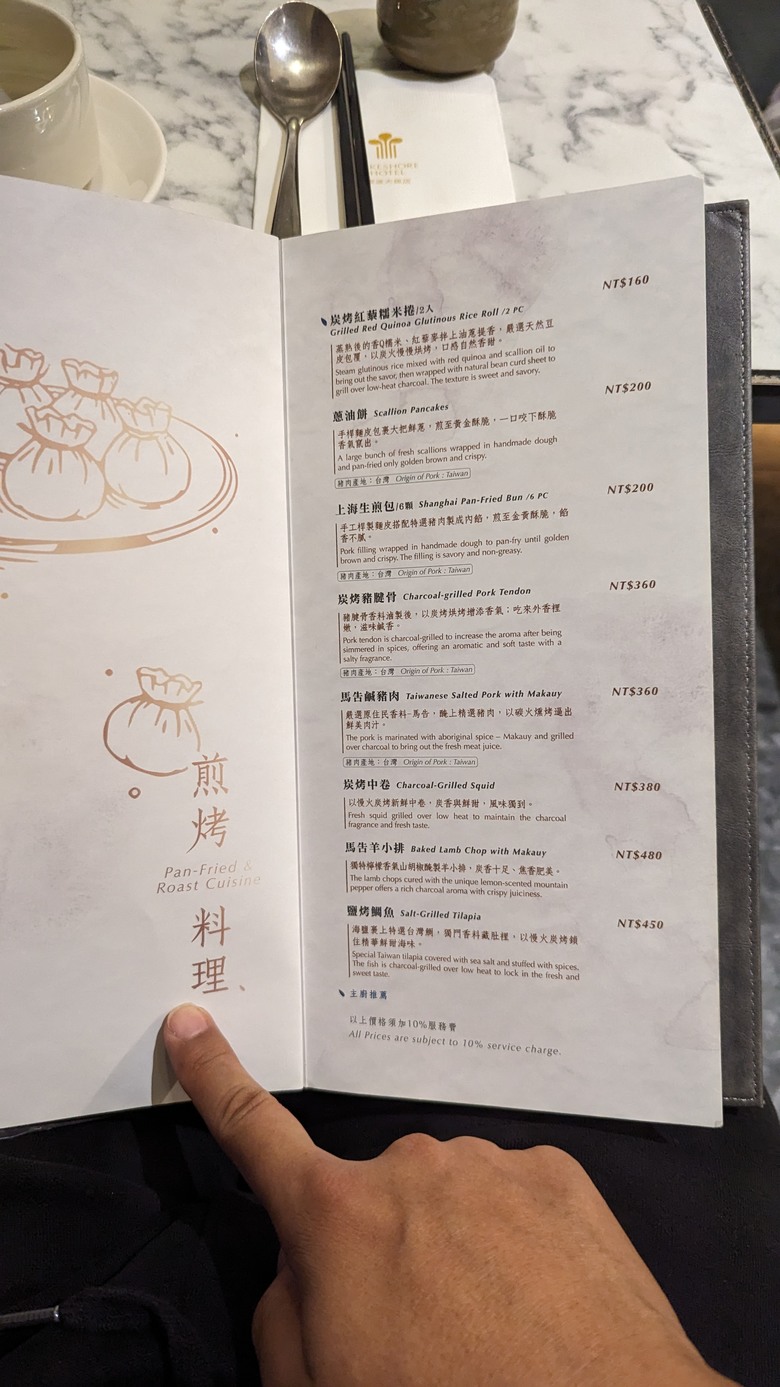 HOTEL
煎烤
Pan-Fried &
Roast Cuisine
料理
NT$160
炭烤紅藜糯米捲/2人
Grilled Red Quinoa Glutinous Rice Roll /2 PC
蒸熟後的香Q糯米、紅藜麥拌上油蔥提香，嚴選天然豆
皮包覆，以炭火慢慢烘烤，口感自然香甜。
Steam glutinous rice mixed with red quinoa and scallion oil to
bring out the savor, then wrapped with natural bean curd sheet to
grill over low-heat charcoal. The texture is sweet and savory.
NT$200
蔥油餅 Scallion Pancakes
手桿麵皮包裹大把鮮蔥，煎至黃金酥脆，一口咬下酥脆
香氣竄出。
A large bunch of fresh scallions wrapped in handmade dough
and pan-fried only golden brown and crispy.
豬肉產地：台灣 Origin of Pork : Taiwan
NT$200
上海生煎包/6顆 Shanghai Pan-Fried Bun /6 PC
手工桿製麵皮搭配特選豬肉製成內餡，煎至金黃酥脆，餡
香不膩。
Pork filling wrapped in handmade dough to pan-fry until golden
brown and crispy. The filling is savory and non-greasy.
豬肉產地：台灣 Origin of Pork : Taiwan
NT$360
炭烤豬腱骨 Charcoal-grilled Pork Tendon
豬腱骨香料滷製後，以炭烤烘烤增添香氣；吃來外香裡
嫩，滋味鹹香。
Pork tendon is charcoal-grilled to increase the aroma after being
simmered in spices, offering an aromatic and soft taste with a
salty fragrance.
豬肉產地：台灣 Origin of Pork : Taiwan
NT$360
馬告鹹豬肉 Taiwanese Salted Pork with Makauy
嚴選原住民香料-馬告，醃上精選豬肉，以碳火燻烤逼出
鮮美肉汁。
The pork is marinated with aboriginal spice – Makauy and grilled
over charcoal to bring out the fresh meat juice.
豬肉產地：台灣 Origin of Pork : Taiwan
NT$380
炭烤中卷 Charcoal-Grilled Squid
以慢火炭烤新鮮中卷，炭香與鮮甜，風味獨到。
Fresh squid grilled over low heat to maintain the charcoal
fragrance and fresh taste.
NT$480
馬告羊小排 Baked Lamb Chop with Makauy
獨特檸檬香氣山胡椒醃製羊小排，炭香十足、焦香肥美。
The lamb chops cured with the unique lemon-scented mountain
pepper offers a rich charcoal aroma with crispy juiciness.
NT$450
鹽烤鯛魚 Salt-Grilled Tilapia
海鹽裹上特選台灣鯛，獨門香料藏肚裡，以慢火炭烤鎖
住精華鮮甜海味。
Special Taiwan tilapia covered with sea salt and stuffed with spices.
The fish is charcoal-grilled over low heat to lock in the fresh and
sweet taste.
主廚推薦
以上價格須加10%服務費
All Prices are subject to 10% service charge.